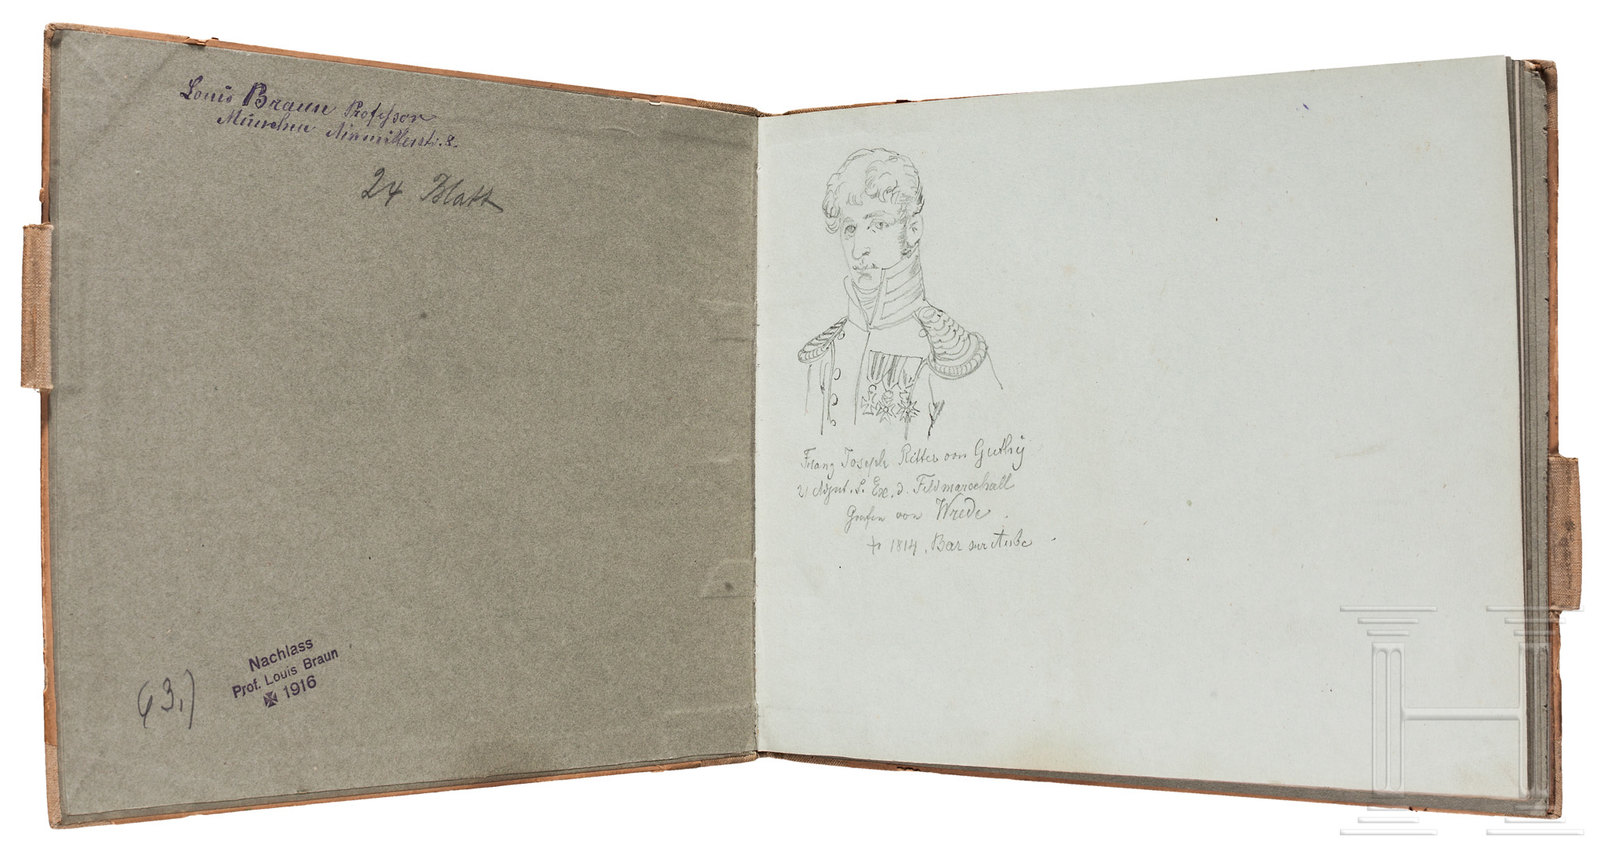 Louis Braun Professor
München Ainmillerstr. 8.
24 Blatt
63.)
Nachlass
Prof. Louis Braun
✠ 1916
Franz Joseph Ritter von Guthy
2 Adjut. S. Ex. d. Feldmarschall
Grafen von Wrede
† 1814, Bar sur Aube
H